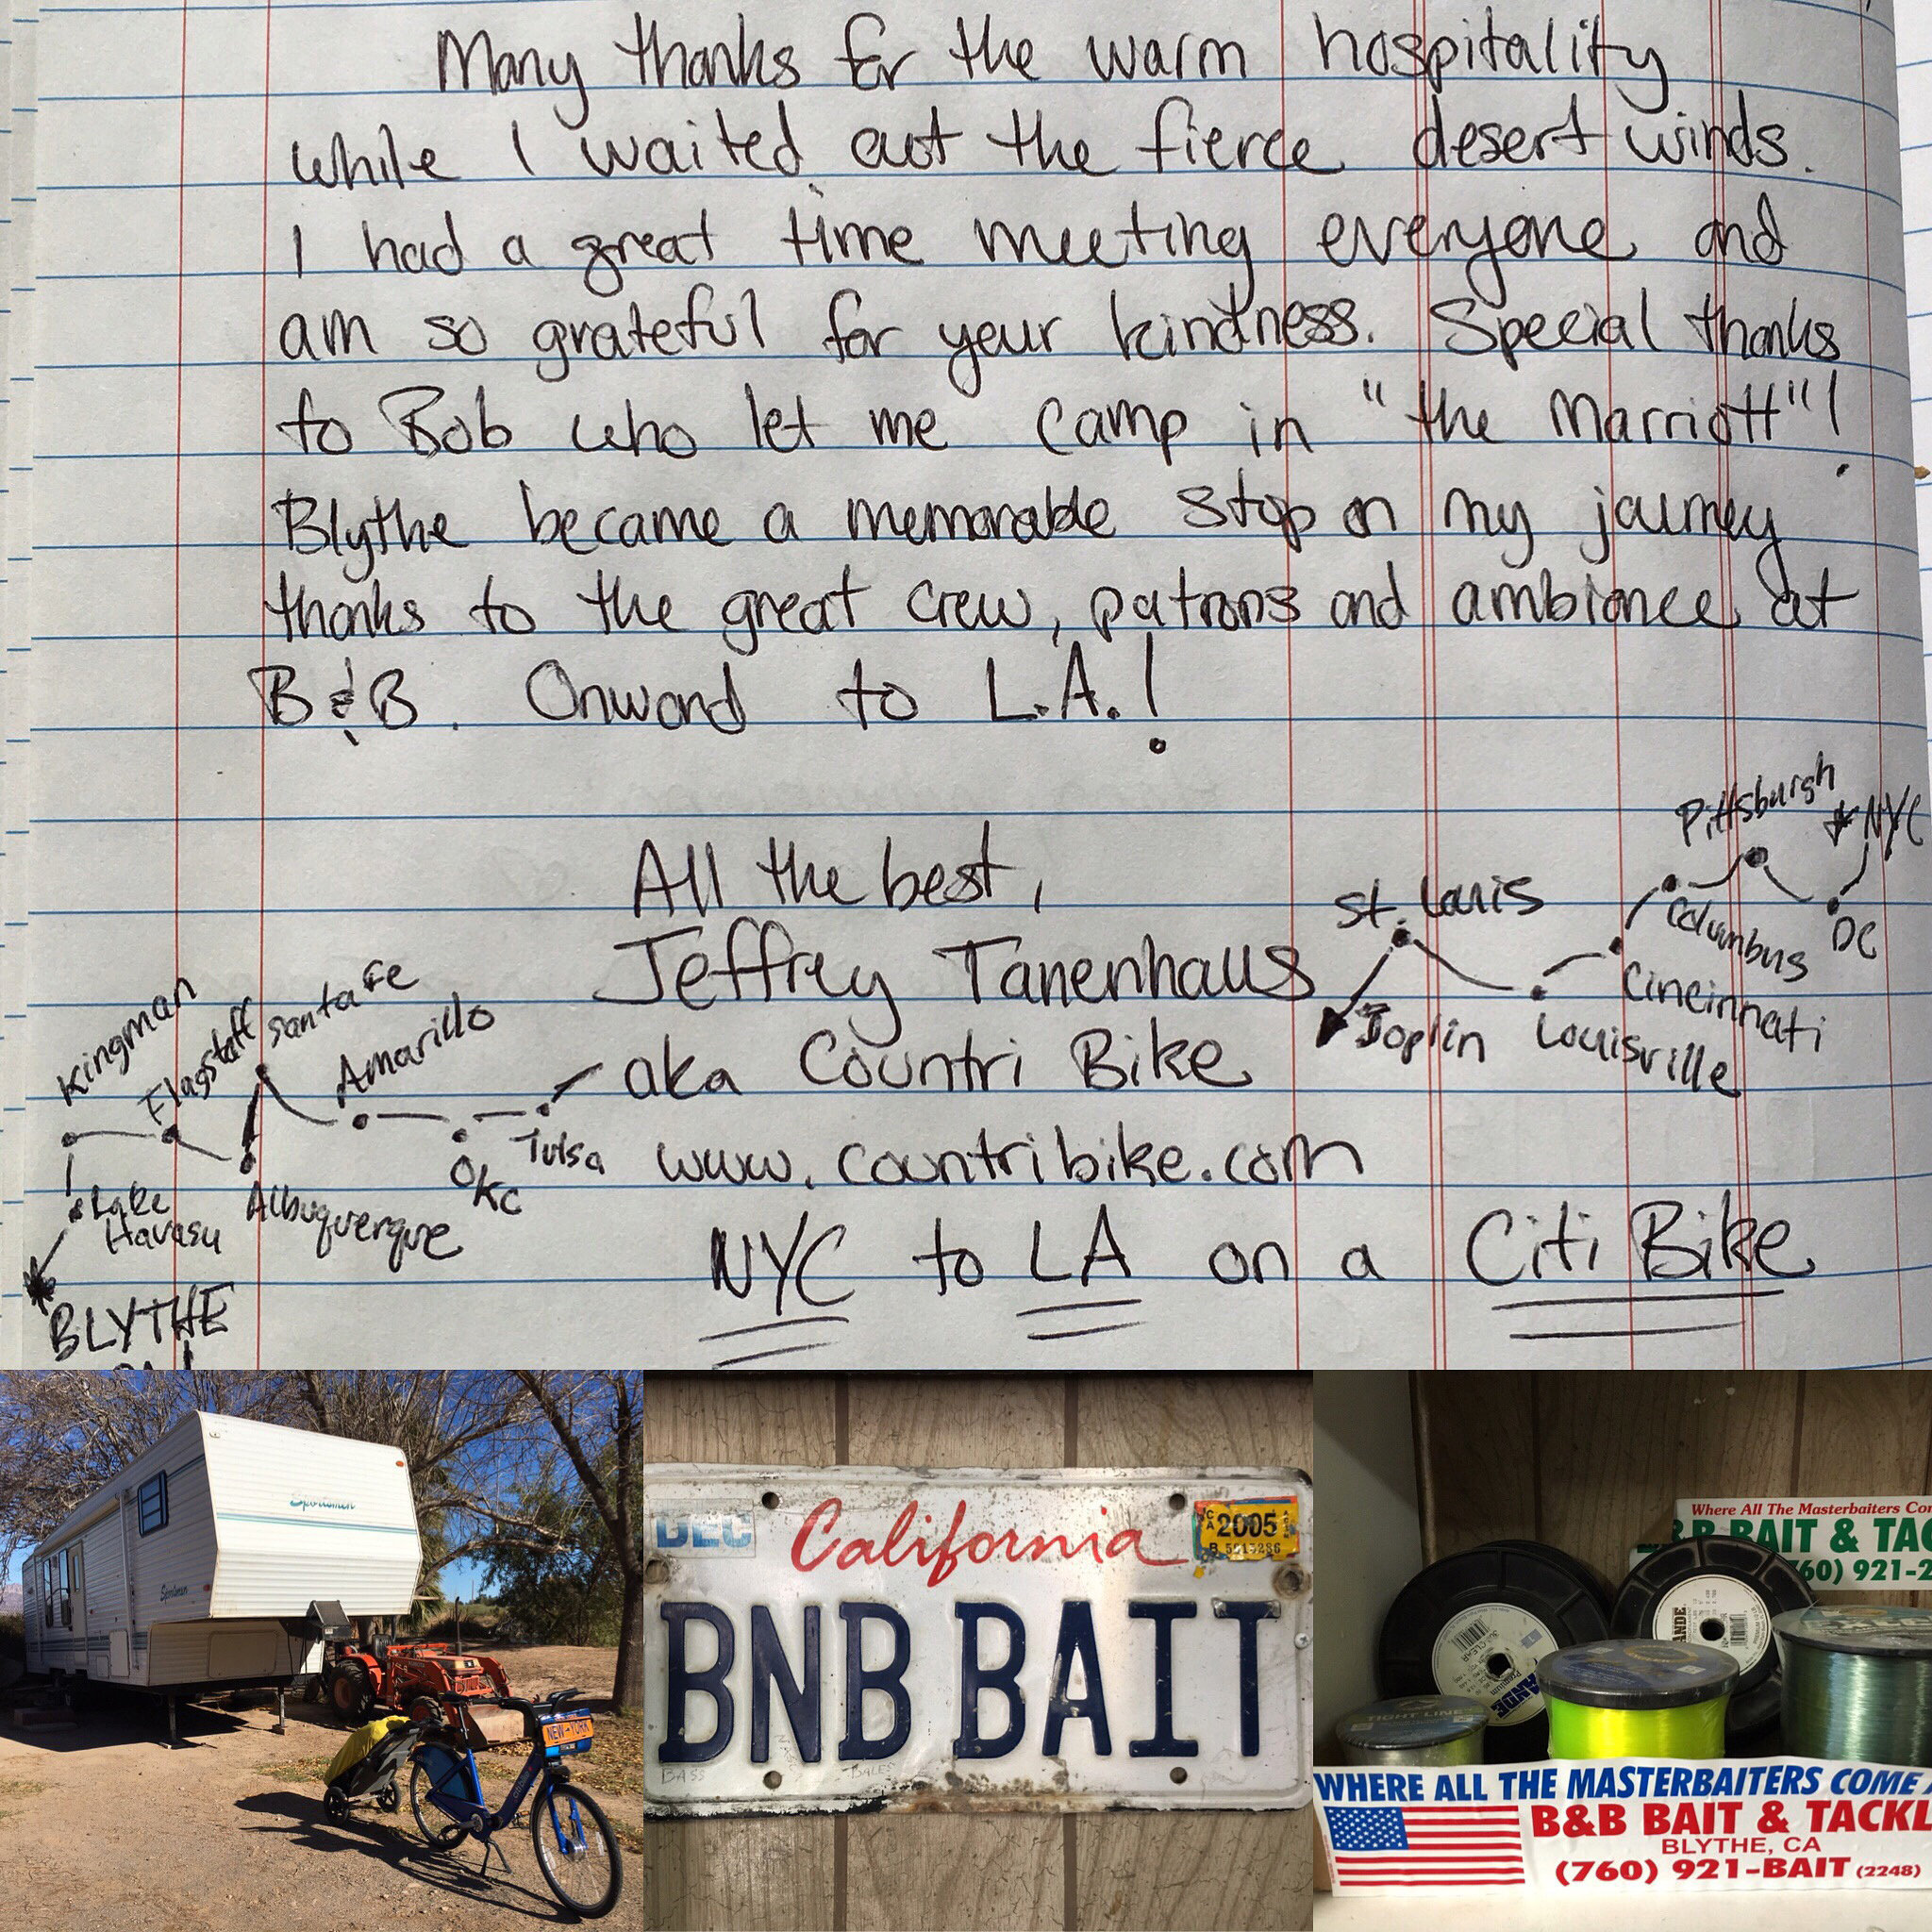 Many thanks for the warm hospitality
while I waited out the fierce desert winds.
I had a great time meeting everyone and
am so grateful for your kindness. Special thanks
to Bob who let me camp in "the Marriott"!
Blythe became a memorable stop on my journey
thanks to the great crew, patrons and ambiance at
B & B. Onward to L.A.!
All the best,
Jeffrey Tanenhaus
aka Countri Bike
www.countribike.com
NYC to LA on a Citi Bike
NYC
DC
Pittsburgh
Columbus
Cincinnati
Louisville
St. Louis
Joplin
Tulsa
OKC
Amarillo
Santa Fe
Albuquerque
Flagstaff
Kingman
Lake
Havasu
BLYTHE
Sportsmen
Sportsmen
NEW-YORK
DEC California CA 2005
BNB BAIT
BASS
Where All The Masterbaiters Co
B&B BAIT & TAC
60) 921-2
TIGHT LINE
WHERE ALL THE MASTERBAITERS COME
B&B BAIT & TACKL
BLYTHE, CA
(760) 921-BAIT (2248)